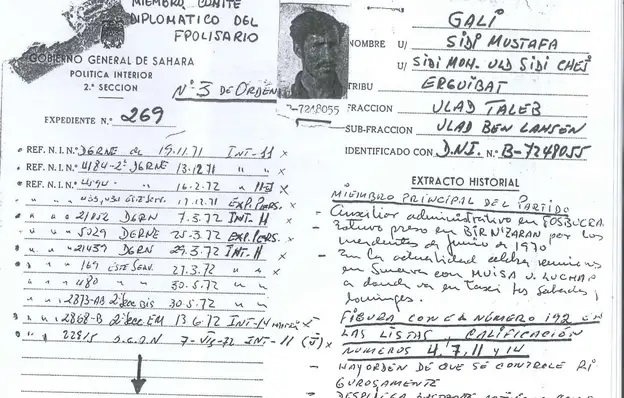 MIEMBRO COMITE
DIPLOMATICO DEL
FPOLISARIO
GOBIERNO GENERAL DE SAHARA
POLITICA INTERIOR
2.ª SECCION
Nº 3 DE ORDEN
EXPEDIENTE N.º 269
REF. N.I.N.º DGRNE 15.11.71 INT-11 x
REF. N.I.N.º 4184-2ª DGRNE 13.12.71 " " x
REF. N.I.N.º 16.2.72 " x
17.12.71 EXP.PERS. x
" " " 21052 DGRN 7.3.72 INT. II x
" " " 5029 DGRNE 25-3-72 EXP.PERS. x
" " " 21439 DGRN 29.3-72 INT. II x
" " " 169 ESTE SERV. 27.3.72 " " x
" " " 480 " 30.5.72 " "
" " " 2873-AB 2ª Sec BIS 30.5.72 " "
" " " 2868-B 2ª Sec EM 13.6.72 INT-14 x
" " " 22915 7-VIII-72 INT-11 x
B-7248055
GALI
NOMBRE U/ SIDI MUSTAFA
U/ SIDI MOH. ULD SIDI CHEJ
TRIBU ERGUIBAT
FRACCION ULAD TALEB
SUB-FRACCION ULAD BEN LAHSEN
IDENTIFICADO CON D.N.I. N.º B-7248055
EXTRACTO HISTORIAL
MIEMBRO PRINCIPAL DEL PARTIDO
- Auxiliar administrativo en FOSBUCRA.
- Estuvo preso en BIRNIZARAN por los
incidentes de junio de 1970
- En la actualidad celebra reuniones
en Smara con MUISA U. LUCHAP
a donde va en Taxi los sabados y
domingos.
- FIGURA CON EL NÚMERO 192 EN
LAS LISTAS, CALIFICACIÓN
NUMEROS 4, 7, 11 y 14
- HAY ORDEN DE QUE SE CONTROLE RI
GUROSAMENTE
- DESPLIEGA BASTANTE